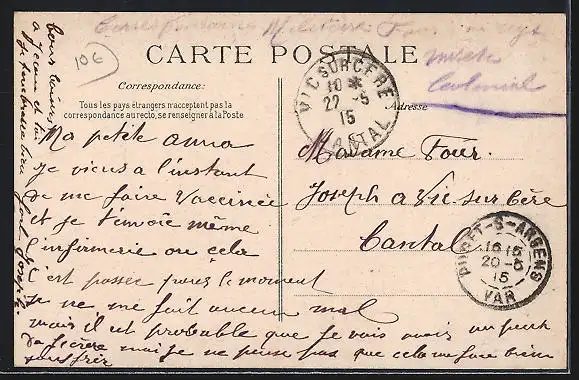 Correspondance Militaire
CARTE POSTALE
106
Correspondance:
Tous les pays étrangers n'acceptent pas la
correspondance au recto, se renseigner à la Poste
Adresse
VIC SUR CERE
10 *
22 -5
15
CANTAL
Ma petite anna
Je viens a l'instant
de me faire Vaccinée
et je t'envoie même
l'infirmerie ou cela
c'est passée pour le moment
Je ne me fait aucun mal
mais il est probable que je vais avoir un peux
de fievre mai je ne pense pas que cela me face bien
souffrir
Madame Four
Joseph a Vic sur Cère
Cantal
PUGET-S-ARGENS
16 15
20 -5
15
VAR